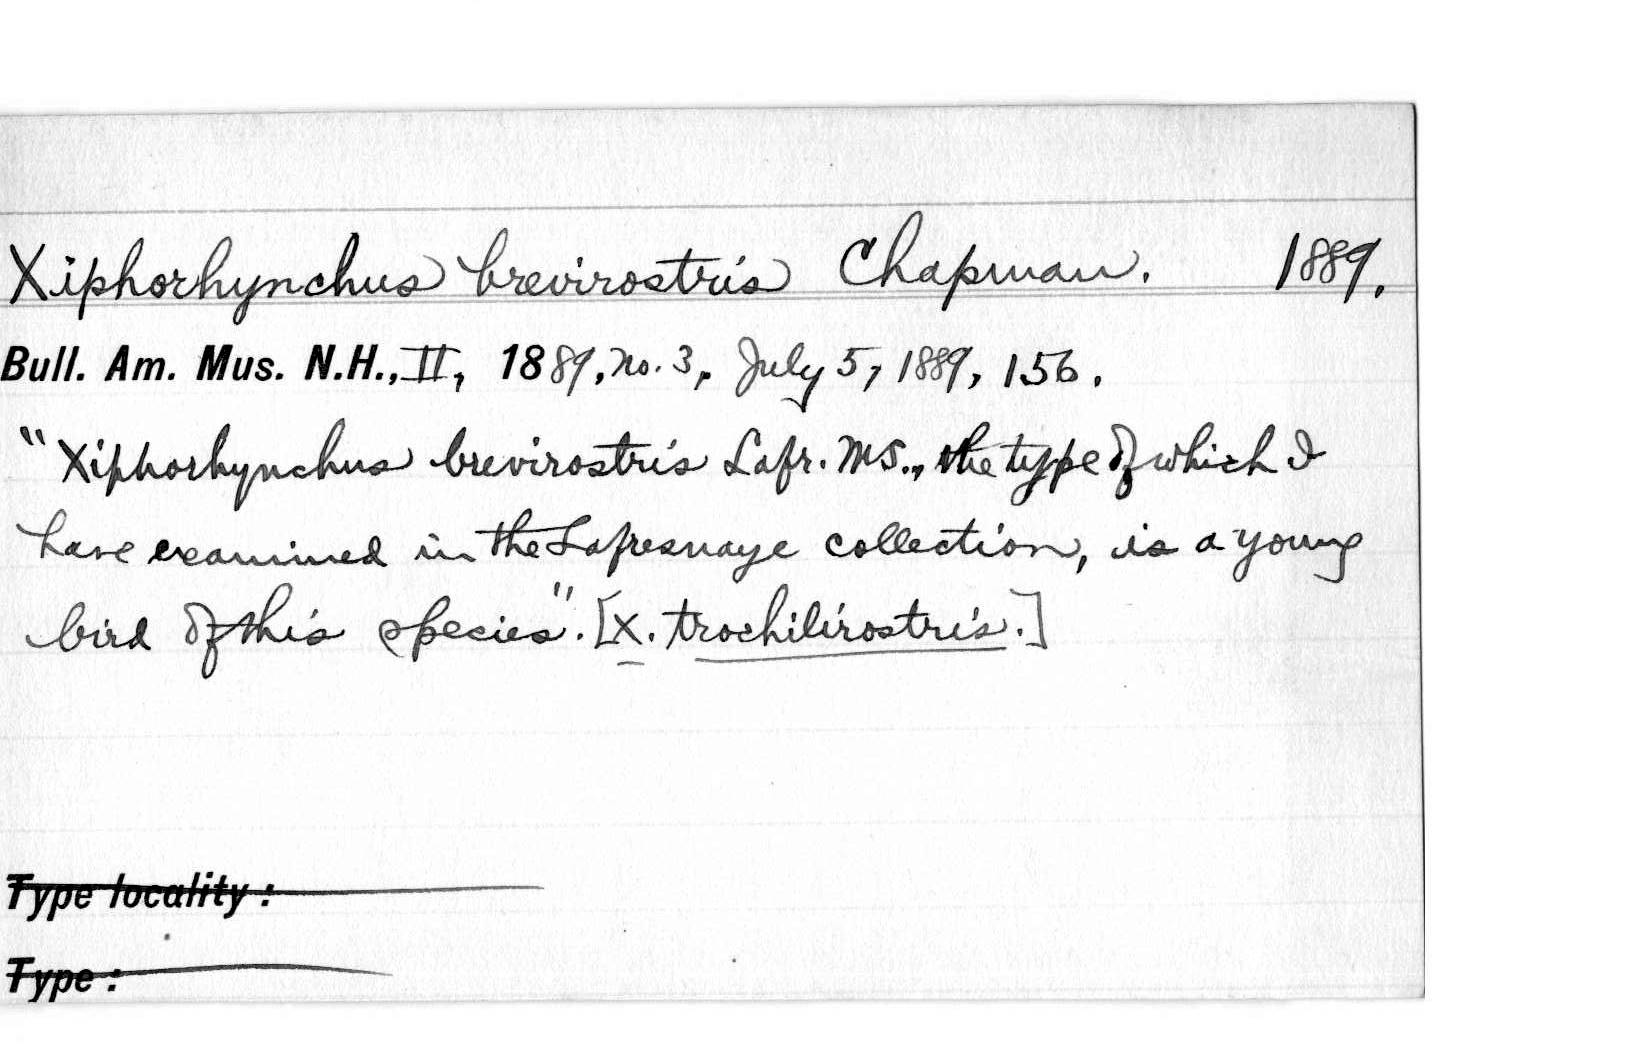 Xiphorhynchus brevirostris Chapman. 1889.
Bull. Am. Mus. N.H., II, 1889, no. 3, July 5, 1889, 156.
"Xiphorhynchus brevirostris Lafr. MS., the type of which I
have examined in the Lafresnaye collection, is a young
bird of this species". [X. trochilirostris.]
Type locality:
Type: